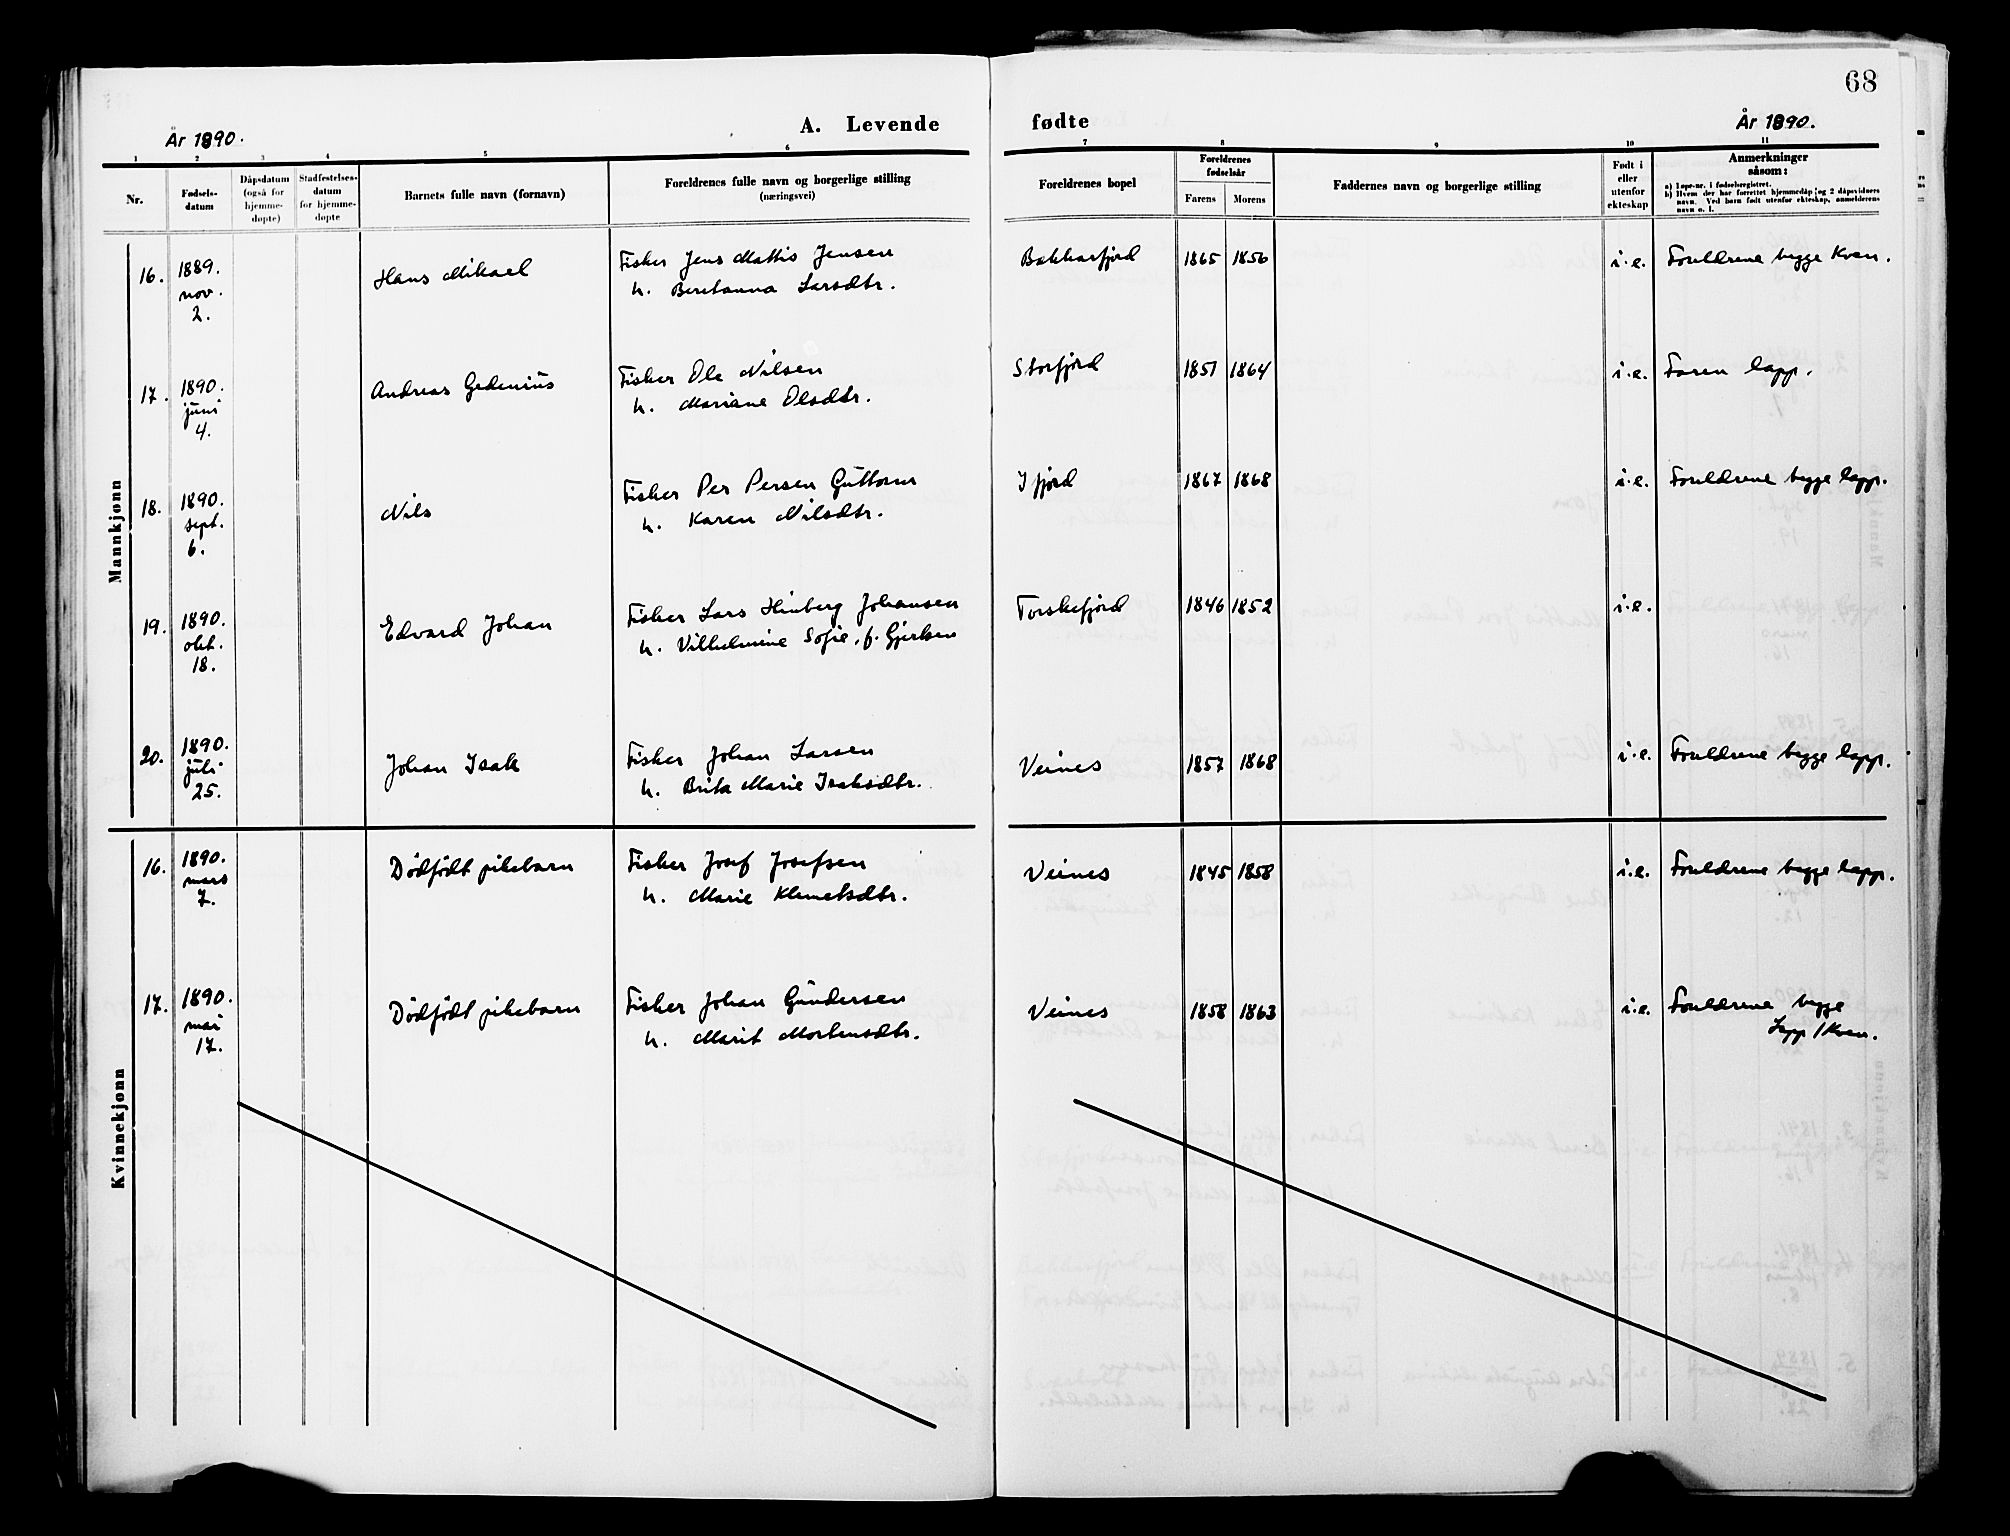 68
År 1890.
A. Levende fødte
År 1890.
1 2 3 4 5 6 7 8 9 10 11
Nr.
Fødsels-
datum
Dåpsdatum
(også for
hjemme-
døpte)
Stadfestelses-
datum
for hjemme-
døpte
Barnets fulle navn (fornavn)
Foreldrenes fulle navn og borgerlige stilling
(næringsvei)
Foreldrenes bopel
Foreldrenes
fødselsår
Farens Morens
Faddernes navn og borgerlige stilling
Født i
eller
utenfor
ekteskap
Anmerkninger
såsom:
a) Løpe-nr. i fødselsregistret.
b) Hvem der har forrettet hjemmedåp og 2 dåpsvidners
navn. Ved barn født utenfor ekteskap, anmelderens
navn o. l.
Mannkjønn
16. 1889. Hans Mikael Fisker Jens Mathis Jensen Bakkarfjord 1865 1856 i.e. Foreldrene begge Kvæn.
nov. h. Beretanna Larsdtr.
2.
17. 1890. Andreas Gedenius Fisker Ole Nilsen Storfjord 1851 1864 i.e. Faren lapp.
juni h. Mariane Olsdtr.
4.
18. 1890. Nils Fisker Per Persen Guttorm Ifjord 1867 1868 i.e. Foreldrene begge lapp.
sept. h. Karen Nilsdtr.
6.
19. 1890. Edvard Johan Fisker Lars Hinberg Johansen Torskefjord 1846 1852 i.e.
okt. h. Vilhelmine Sofie, f. Gjertsen
18.
20. 1890. Johan Isak Fisker Johan Larsen Veines 1857 1868 i.e. Foreldrene begge lapp.
juli h. Brita Marie Isaksdtr.
25.
Kvinnekjønn
16. 1890. Dødfødt pikebarn Fisker Josef Josefsen Veines 1845 1858 i.e. Foreldrene begge lapp.
mars h. Marie Klemetsdtr.
7.
17. 1890. Dødfødt pikebarn Fisker Johan Gundersen Veines 1858 1863 i.e. Foreldrene begge
mai h. Marit Mortensdtr. Lapp/Kvæn.
17.